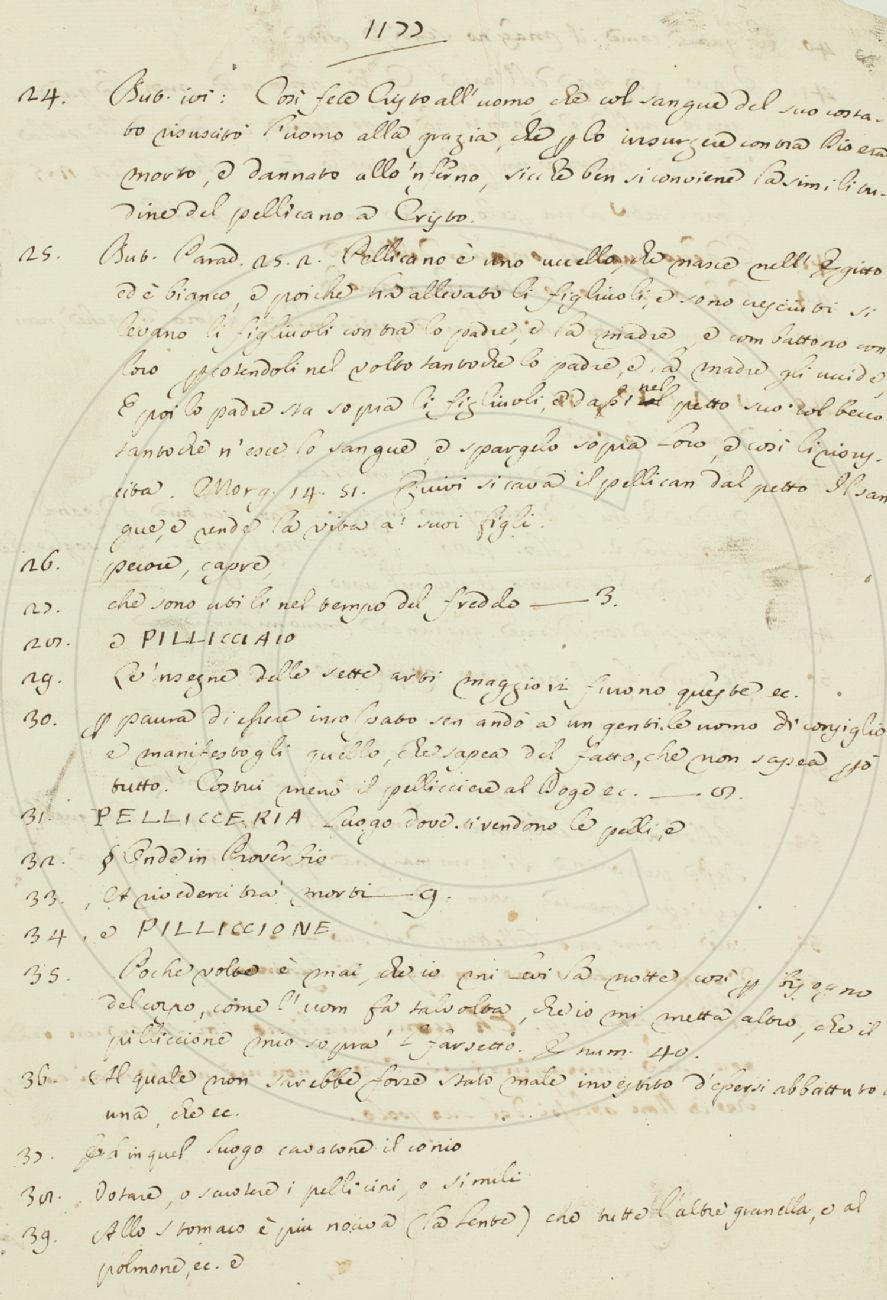 1177
24. But. ivi: Così fece Cristo all'uomo, che col sangue del suo costa-
to risuscitò l'uomo alla grazia, che p lo insurgere contra Dio era
morto, e dannato allo 'nferno, sicchè ben si conviene la similitu-
dine del pellicano a Cristo.
25. But. Parad. 25. 2. Pellicano è uno uccello, che nasce nell'Egitto
ed è bianco, e poichè ha allevato li figliuoli, e sono cresciuti si
levano li figliuoli contra lo padre, e la madre, e combattono con
loro percotendoli nel volto tantochè lo padre, e la madre gli uccide,
E poi lo padre sta sopra li figliuoli, e dassi nel petto suo col becco
tantochè n'esce lo sangue, e spargelo sopra loro, e così li risus-
cita. Morg. 14. 51. Quivi si cava il pellican dal petto Il san
gue, e rende la vita a' suoi figli.
26. pecore, capre,
27. che sono utili nel tempo del freddo — 3.
28. e PILLICCIAIO
29. Le 'nsegne delle sette arti maggiori furono queste ec.
30. p paura di essere incolpato sen andò a un gentile uomo di consiglio
e manifestogli quello, che sapea del fatto, che non sapea però
tutto. Costui menò il pellicciere al Doge ec. — 8.
31. PELLICCERIA Luogo dove si vendono le pelli, e
32. § Onde in Proverbio
33. , A rivederci tra' morti — 9.
34. , e PILLICCIONE
35. Poche volte è mai, che io mi levi la notte così p bisogno
del corpo, come l'uom fa talvolta, che io mi metta altro, che il
pilliccione mio sopra 'l farsetto. E num. 40.
36. Al quale non sarebbe forse stato male investito d'essersi abbattuto a
una, che ec.
37. in quel luogo cavatone il conio
38. , Votare, o scuotere i pellicini, o simili
39. Allo stomaco è più nociva (la lente) che tutte l'altre granella, e al
polmone, ec. e